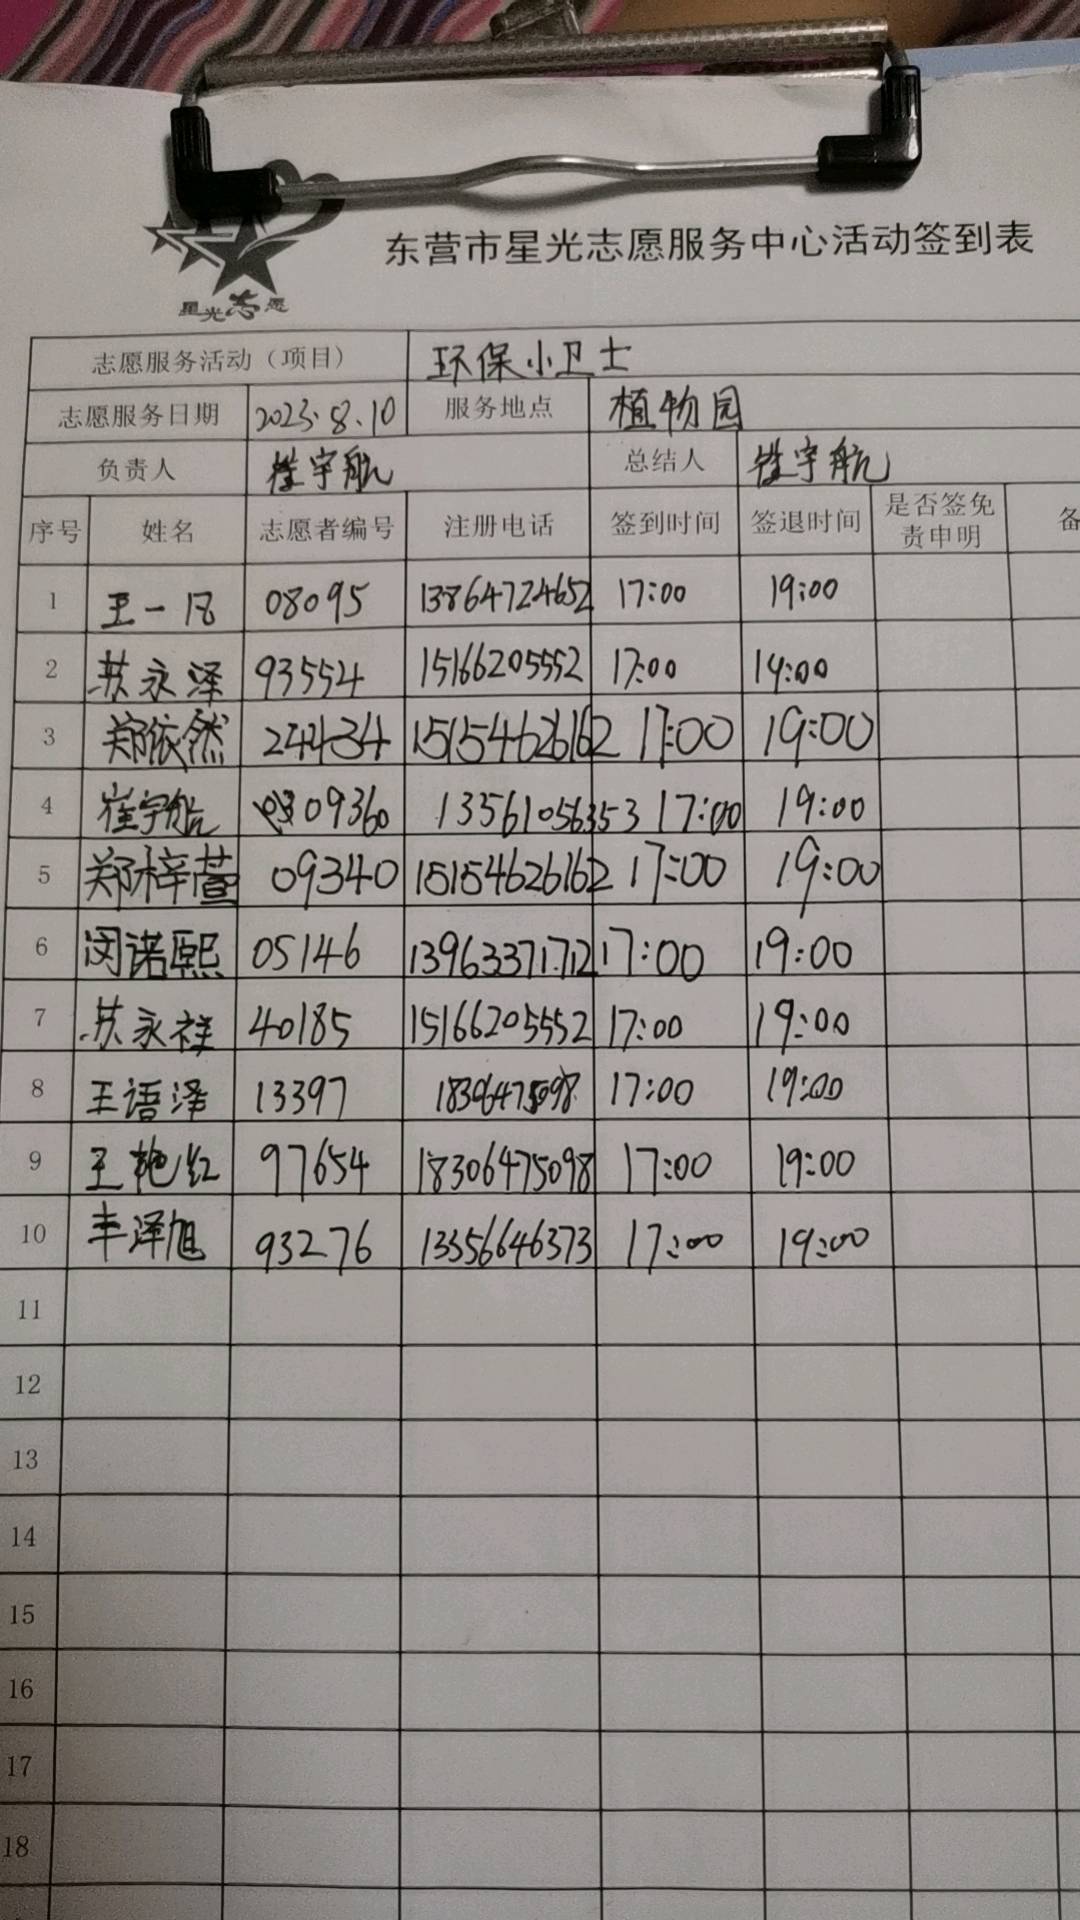 星光志愿
东营市星光志愿服务中心活动签到表
志愿服务活动（项目） 环保小卫士
志愿服务日期 2023.8.10 服务地点 植物园
负责人 崔宇航 总结人 崔宇航
序号 姓名 志愿者编号 注册电话 签到时间 签退时间 是否签免责申明 备
1 王一凡 08095 13864724652 17:00 19:00
2 苏永泽 93554 15166205552 17:00 19:00
3 郑依然 244434 15154626162 17:00 19:00
4 崔宇航 09360 13561056353 17:00 19:00
5 郑梓萱 09340 15154626162 17:00 19:00
6 闵诺熙 05146 13963371712 17:00 19:00
7 苏永祥 40185 15166205552 17:00 19:00
8 王语泽 13397 18306475098 17:00 19:00
9 王艳红 97654 18306475098 17:00 19:00
10 丰泽旭 93276 13356646373 17:00 19:00
11
12
13
14
15
16
17
18